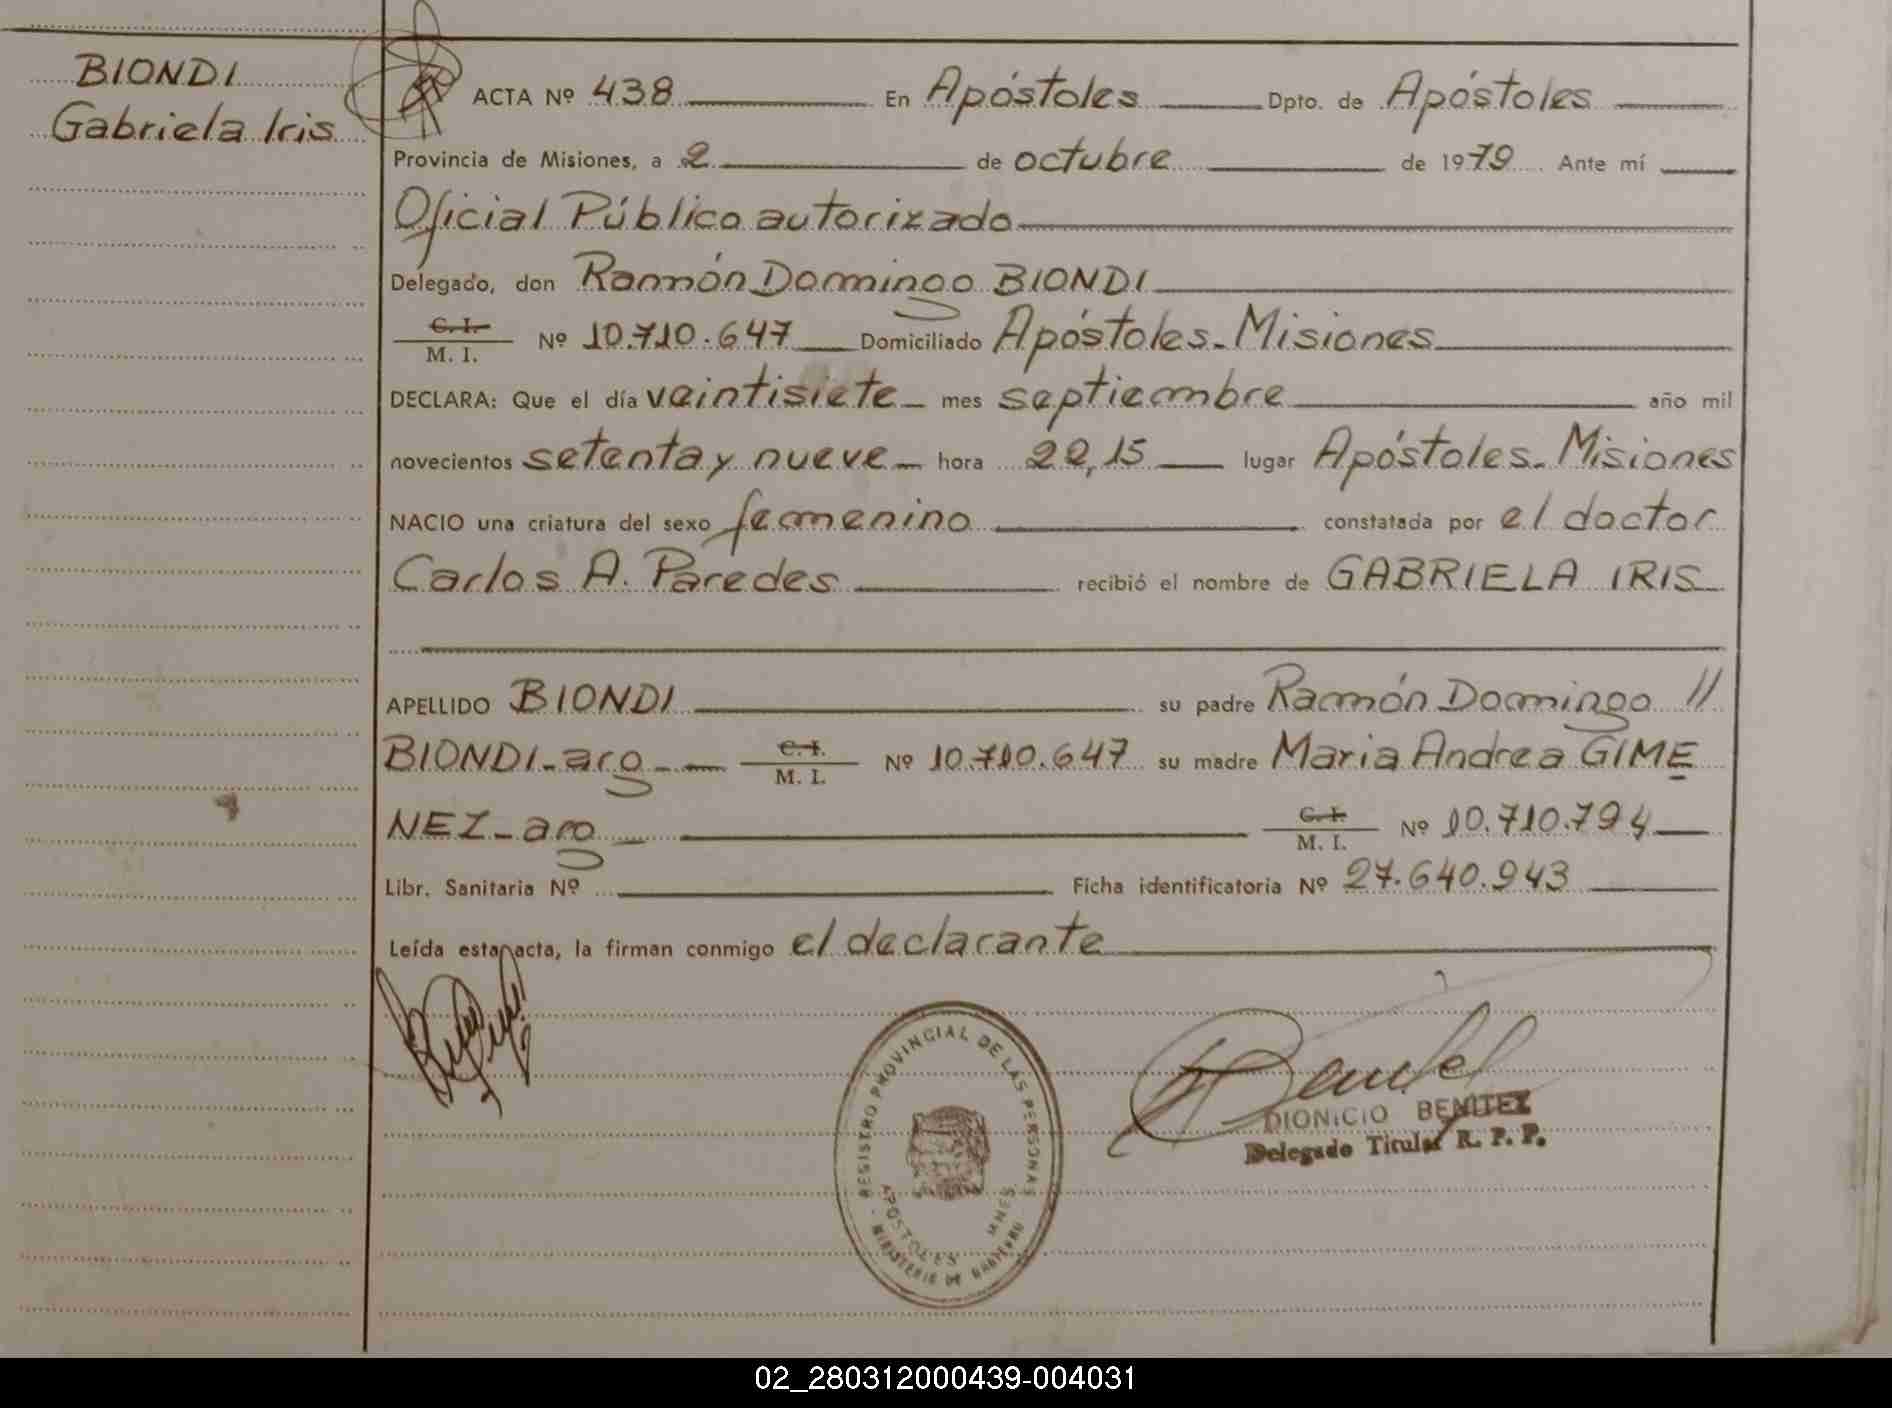 BIONDI
Gabriela Iris
ACTA Nº 438 En Apóstoles Dpto. de Apóstoles
Provincia de Misiones, a 2 de octubre de 1979 Ante mí
Oficial Público autorizado
Delegado, don Ramón Domingo BIONDI
C. I.
M. I. Nº 10.710.647 Domiciliado Apóstoles - Misiones
DECLARA: Que el día veintisiete - mes septiembre año mil
novecientos setenta y nueve - hora 22,15 lugar Apóstoles - Misiones
NACIO una criatura del sexo femenino constatada por el doctor
Carlos A. Paredes recibió el nombre de GABRIELA IRIS
APELLIDO BIONDI su padre Ramón Domingo //
BIONDI - arg - C. I. M. I. Nº 10.710.647 su madre Maria Andrea GIME
NEZ - arg - C. I. M. I. Nº 10.710.794
Libr. Sanitaria Nº Ficha identificatoria Nº 27.640.943
Leída esta acta, la firman conmigo el declarante
REGISTRO PROVINCIAL DE LAS PERSONAS
APOSTOLES MNES
MINISTERIO DE GOBIERNO
DIONICIO BENITEZ
Delegado Titular R. P. P.
02_280312000439-004031